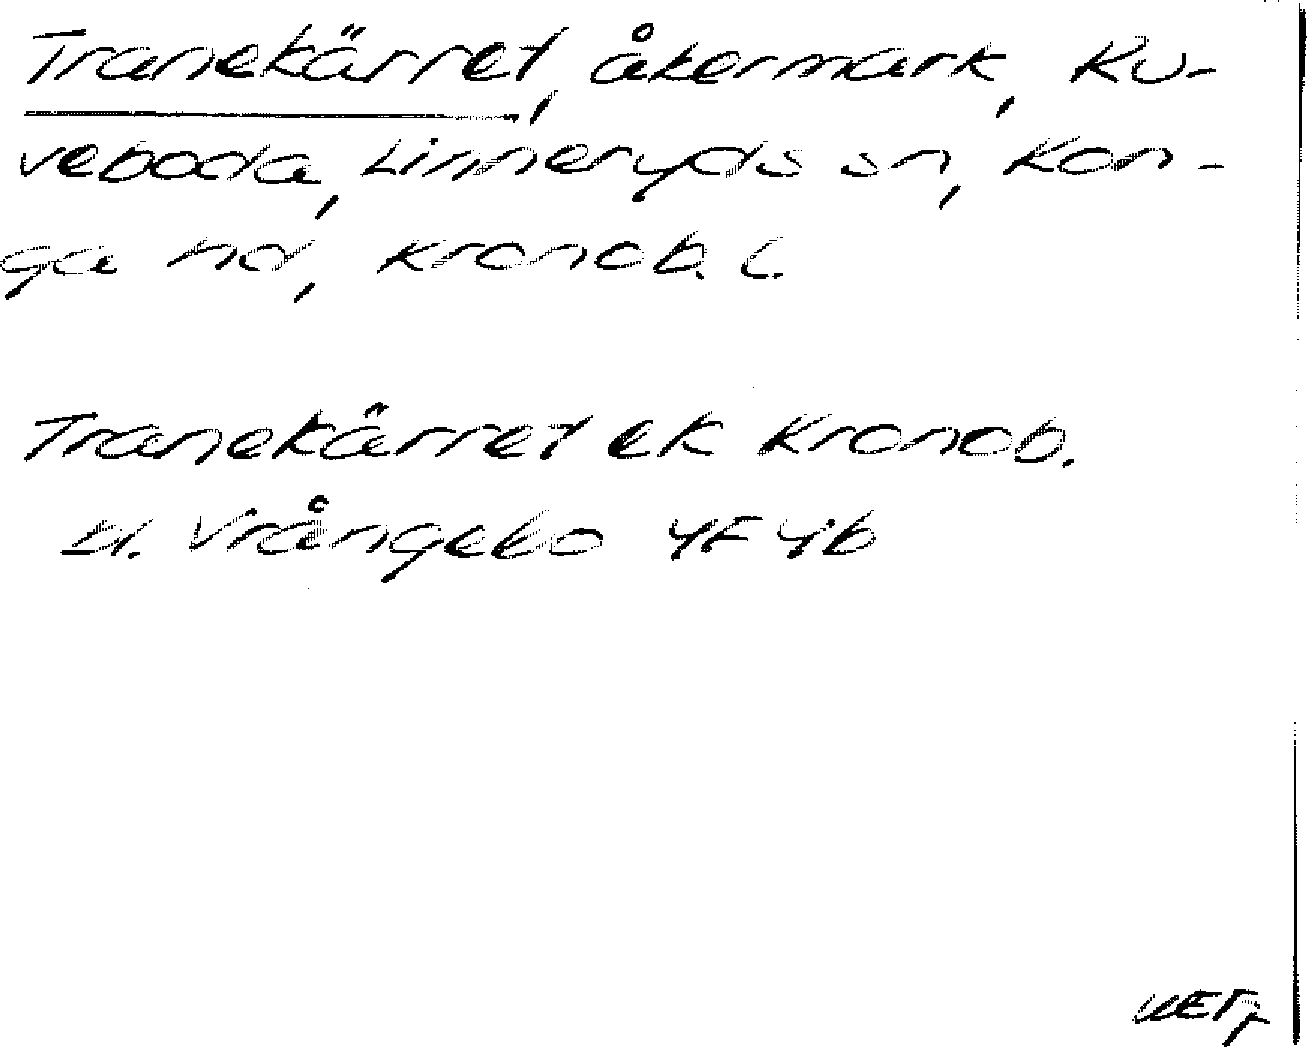 Tranekärret, åkermark, Ku-
veboda, Linneryds sn, Kon-
ga hd, Kronob. l.
Tranekärret ek Kronob.
bl. Vrångebo 4F 4b